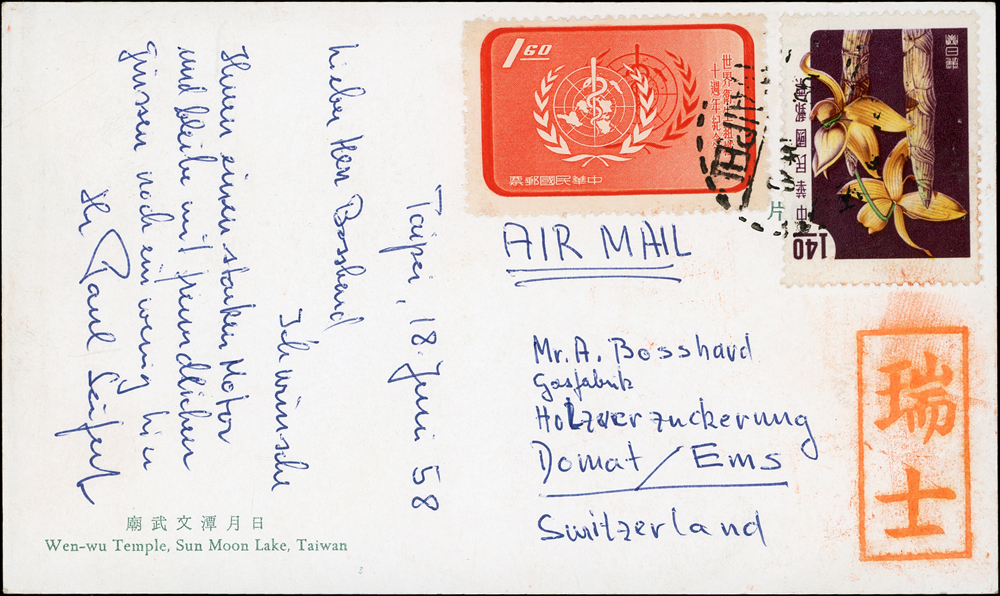 Taipei, 18. Juni 58
Lieber Herr Bosshard
Ich wünsche
Ihnen einen starken Motor
und bleibe mit freundlichen
Grüssen noch ein wenig hier
Ihr Paul Seifert
廟武文潭月日
Wen-wu Temple, Sun Moon Lake, Taiwan
1 60
世界衛生組織
十週年紀念
票郵國民華中
TAIPEI
片
中華民國郵票
140
AIR MAIL
Mr. A. Bosshard
Gasfabrik
Holzverzuckerung
Domat/Ems
Switzerland
瑞士